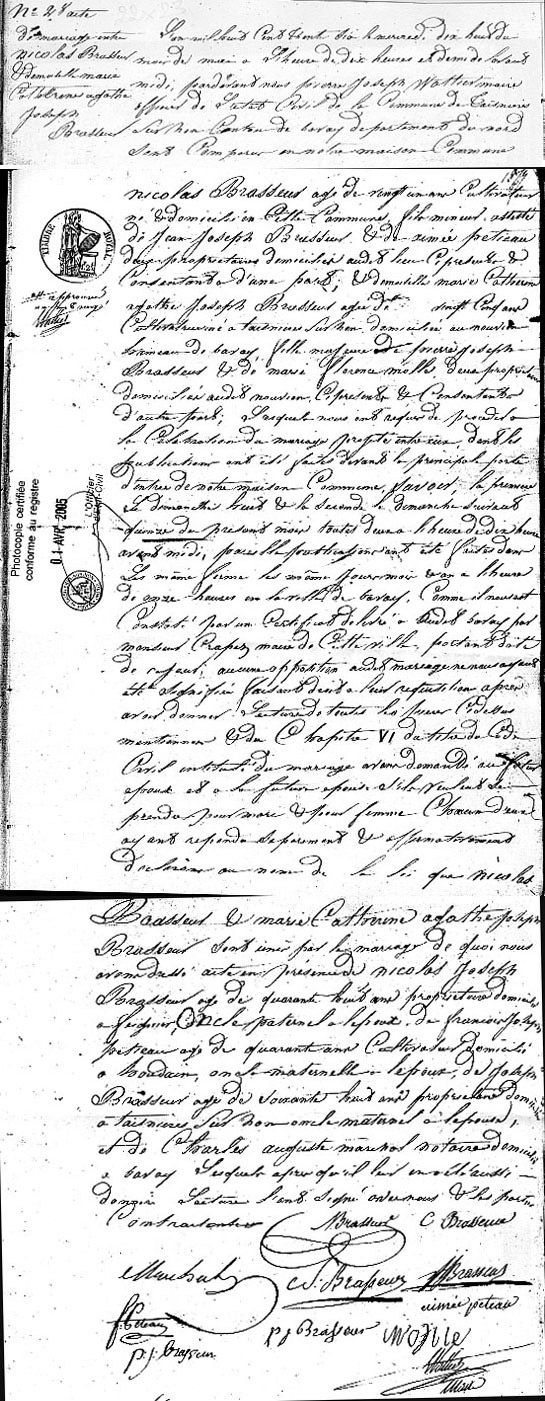 N° 2. acte
de mariage entre
nicolas Brasseur
& demoiselle marie
Catterine agathe
Joseph
Brasseur
L'an mil huit Cent trente dix huit du
mois de mai a l'heure de dix heures et demi
midi, pardevant nous pierre Joseph Wattier maire
officier de l'etat Civil de la Commune de taisnieres
sur hon Canton de bavay departement du nord
sont Comparus en notre maison Commune
nicolas Brasseur age de vingt un ans Cultivateur
né & domicilié en Cette Commune, fils mineur
de Jean Joseph Brasseur & de aimée peteau
deux proprietaires domiciliés audit lieu Cy present &
Consentants d'une part; & demoiselle marie Catterine
agathe Joseph Brasseur agée de vingt Cinq ans
née a taisnieres sur hon domiciliée au
hameau de bavay, fille majeure de pierre Joseph
Brasseur & de marie florence deux proprietaires
domiciliés audit Cy present & Consentants
d'autre part; Lesquels nous ont requis de proceder a
la Celebration du mariage projeté entre eux, dont les
publications ont été faites devant la principale porte
d'entrée de notre maison Commune, Savoir, la premiere
Le dimanche huit & la seconde le dimanche suivant
quinze du present mois toutes deux a l'heure de dix heures
avant midi, pareilles publications ont été faites dans
Les même forme les même jour mois & an a l'heure
de onze heures en la ville de bavay, Comme il nous est
Constaté par un Certificat delivré a bavay par
monsieur Crapez maire de Cette ville, portant date
de ce jour; aucune opposition audit mariage ne nous ayant
été signifiée faisant droit a leur requisition apres
avoir donner Lecture de toutes les pieces Ci dessus
mentionnées & du Chapitre VI du titre du Code
Civil intitulé du mariage avons demandé au futur
epoux et a la future epouse s'ils veulent se
prendre pour mari & pour femme Chacun d'eux
ayant repondu separement & affirmativement
declarons au nom de la loi que nicolas
Brasseur & marie Catterine agathe Joseph
Brasseur sont unis par le mariage de quoi nous
avons dressé acte en présence de nicolas Joseph
Brasseur age de quarante huit ans proprietaire domicilié
a feignies, Oncle paternel a l'epoux, de francois Joseph
peteau age de quarante ans Cultivateur domicilié
a houdain, oncle maternelle a l'epoux, de Joseph
Brasseur age de soixante huit ans proprietaire domicilié
a taisnieres sur hon oncle maternel a l'epouse,
et de Charles auguste marchal notaire domicilié
a bavay Lesquels apres qu'il leur en a été aussi
donner Lecture l'ont signé avec nous & les parties
Contractantes
Brasseur C Brasseur
Marchal C. J. Brasseur Brasseur
aimée peteau
f. Peteau p j Brasseur
p. j. Brasseur
Wattier
Maire
TIMBRE ROYAL
Photocopie certifiée
conforme au registre
01 AVR. 2005
L'Officier
d'Etat-Civil